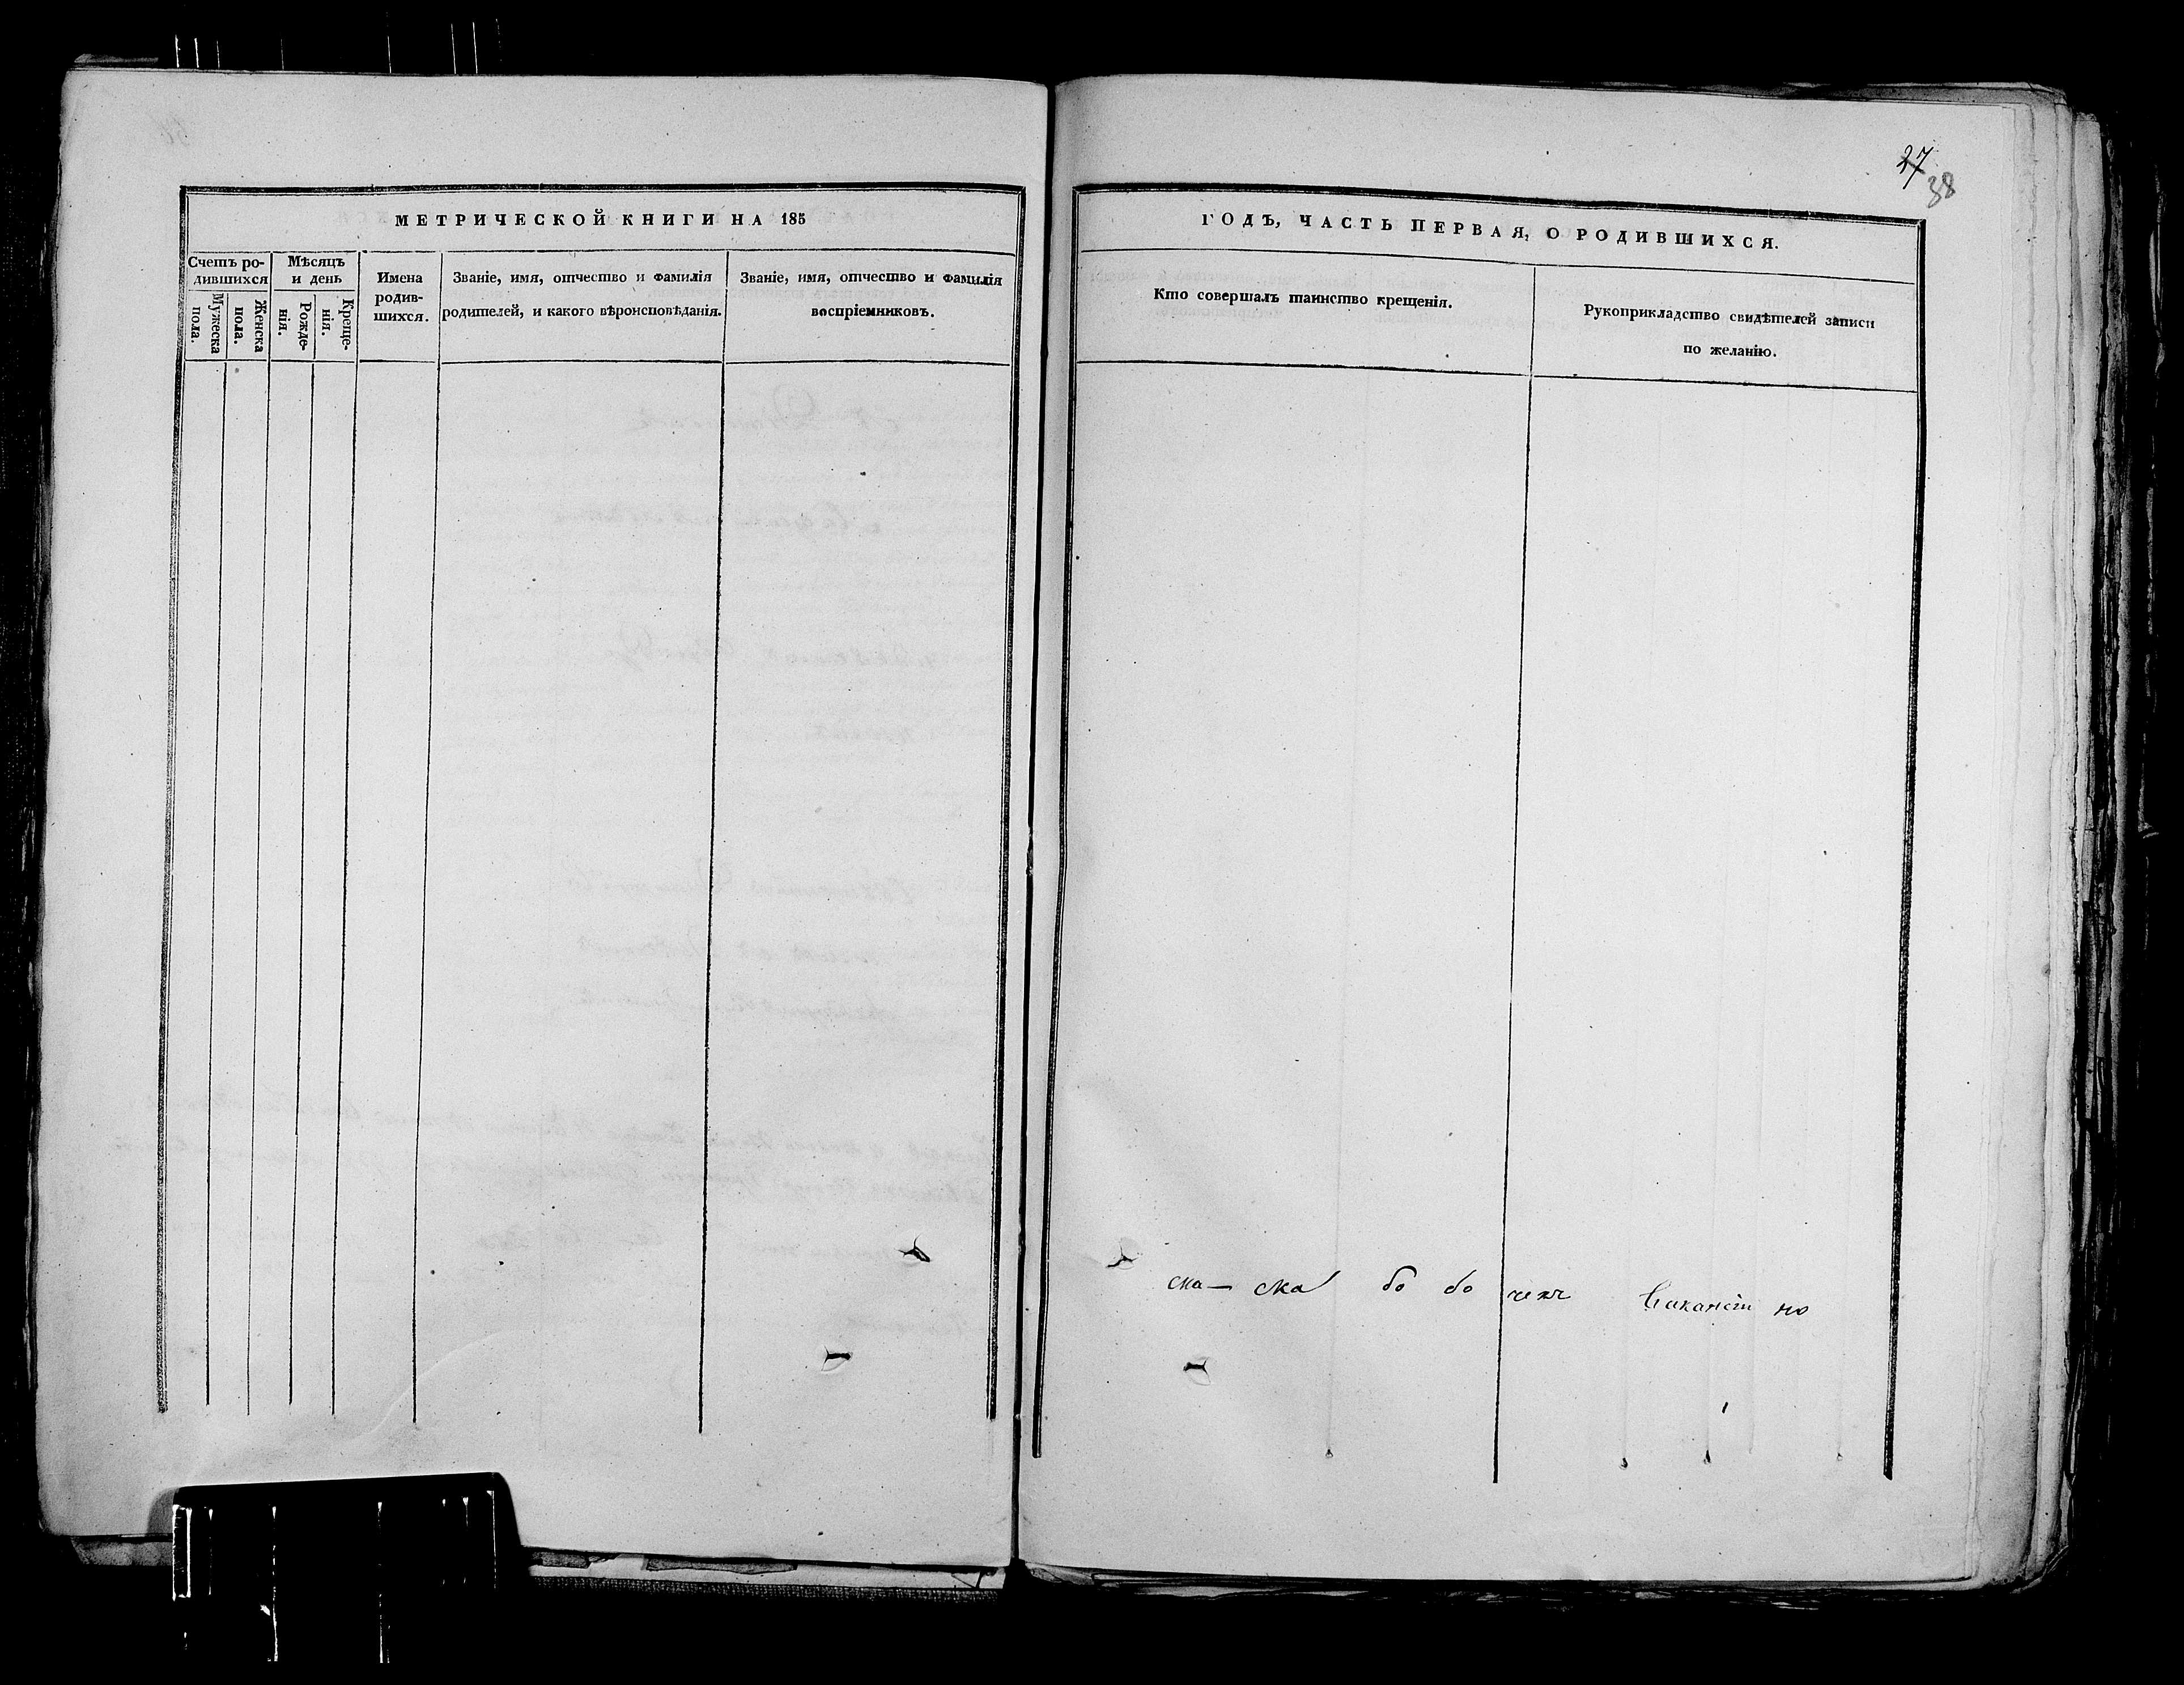 27
38
МЕТРИЧЕСКОЙ КНИГИ НА 185
Счетъ ро-
дившихся
Мѣсяцъ
и день
Мужеска
пола.
Женска
пола.
Рожде-
нія.
Креще-
нія.
Имена
родив-
шихся.
Званіе, имя, отчество и фамилія
родителей, и какого вѣроисповѣданія.
Званіе, имя, отчество и фамилія
воспріемниковъ.
ГОДЪ, ЧАСТЬ ПЕРВАЯ, О РОДИВШИХСЯ.
Кто совершалъ таинство крещенія.
Рукоприкладство свидѣтелей записи
по желанію.
ска бо